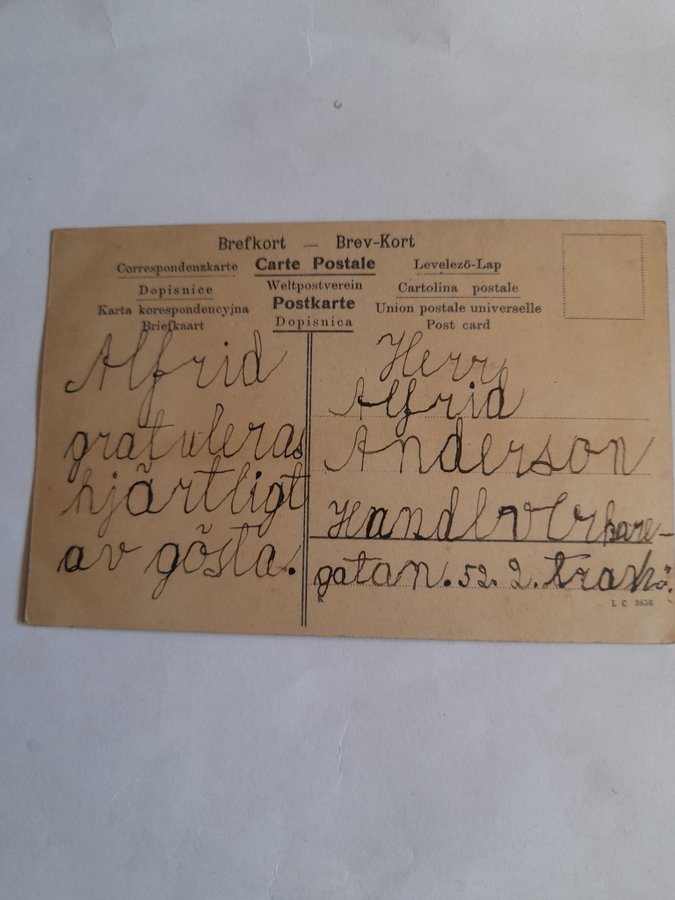 Brefkort — Brev-Kort
Correspondenzkarte Carte Postale Levelező-Lap
Dopisnice Weltpostverein Cartolina postale
Karta korespondencyjna Postkarte Union postale universelle
Briefkaart Dopisnica Post card
Alfrid
gratuleras
hjärtligt
av gösta.
Herr
Alfrid
Anderson
Handtverkare-
gatan. 52. 2. trakö.
K
L C 3836